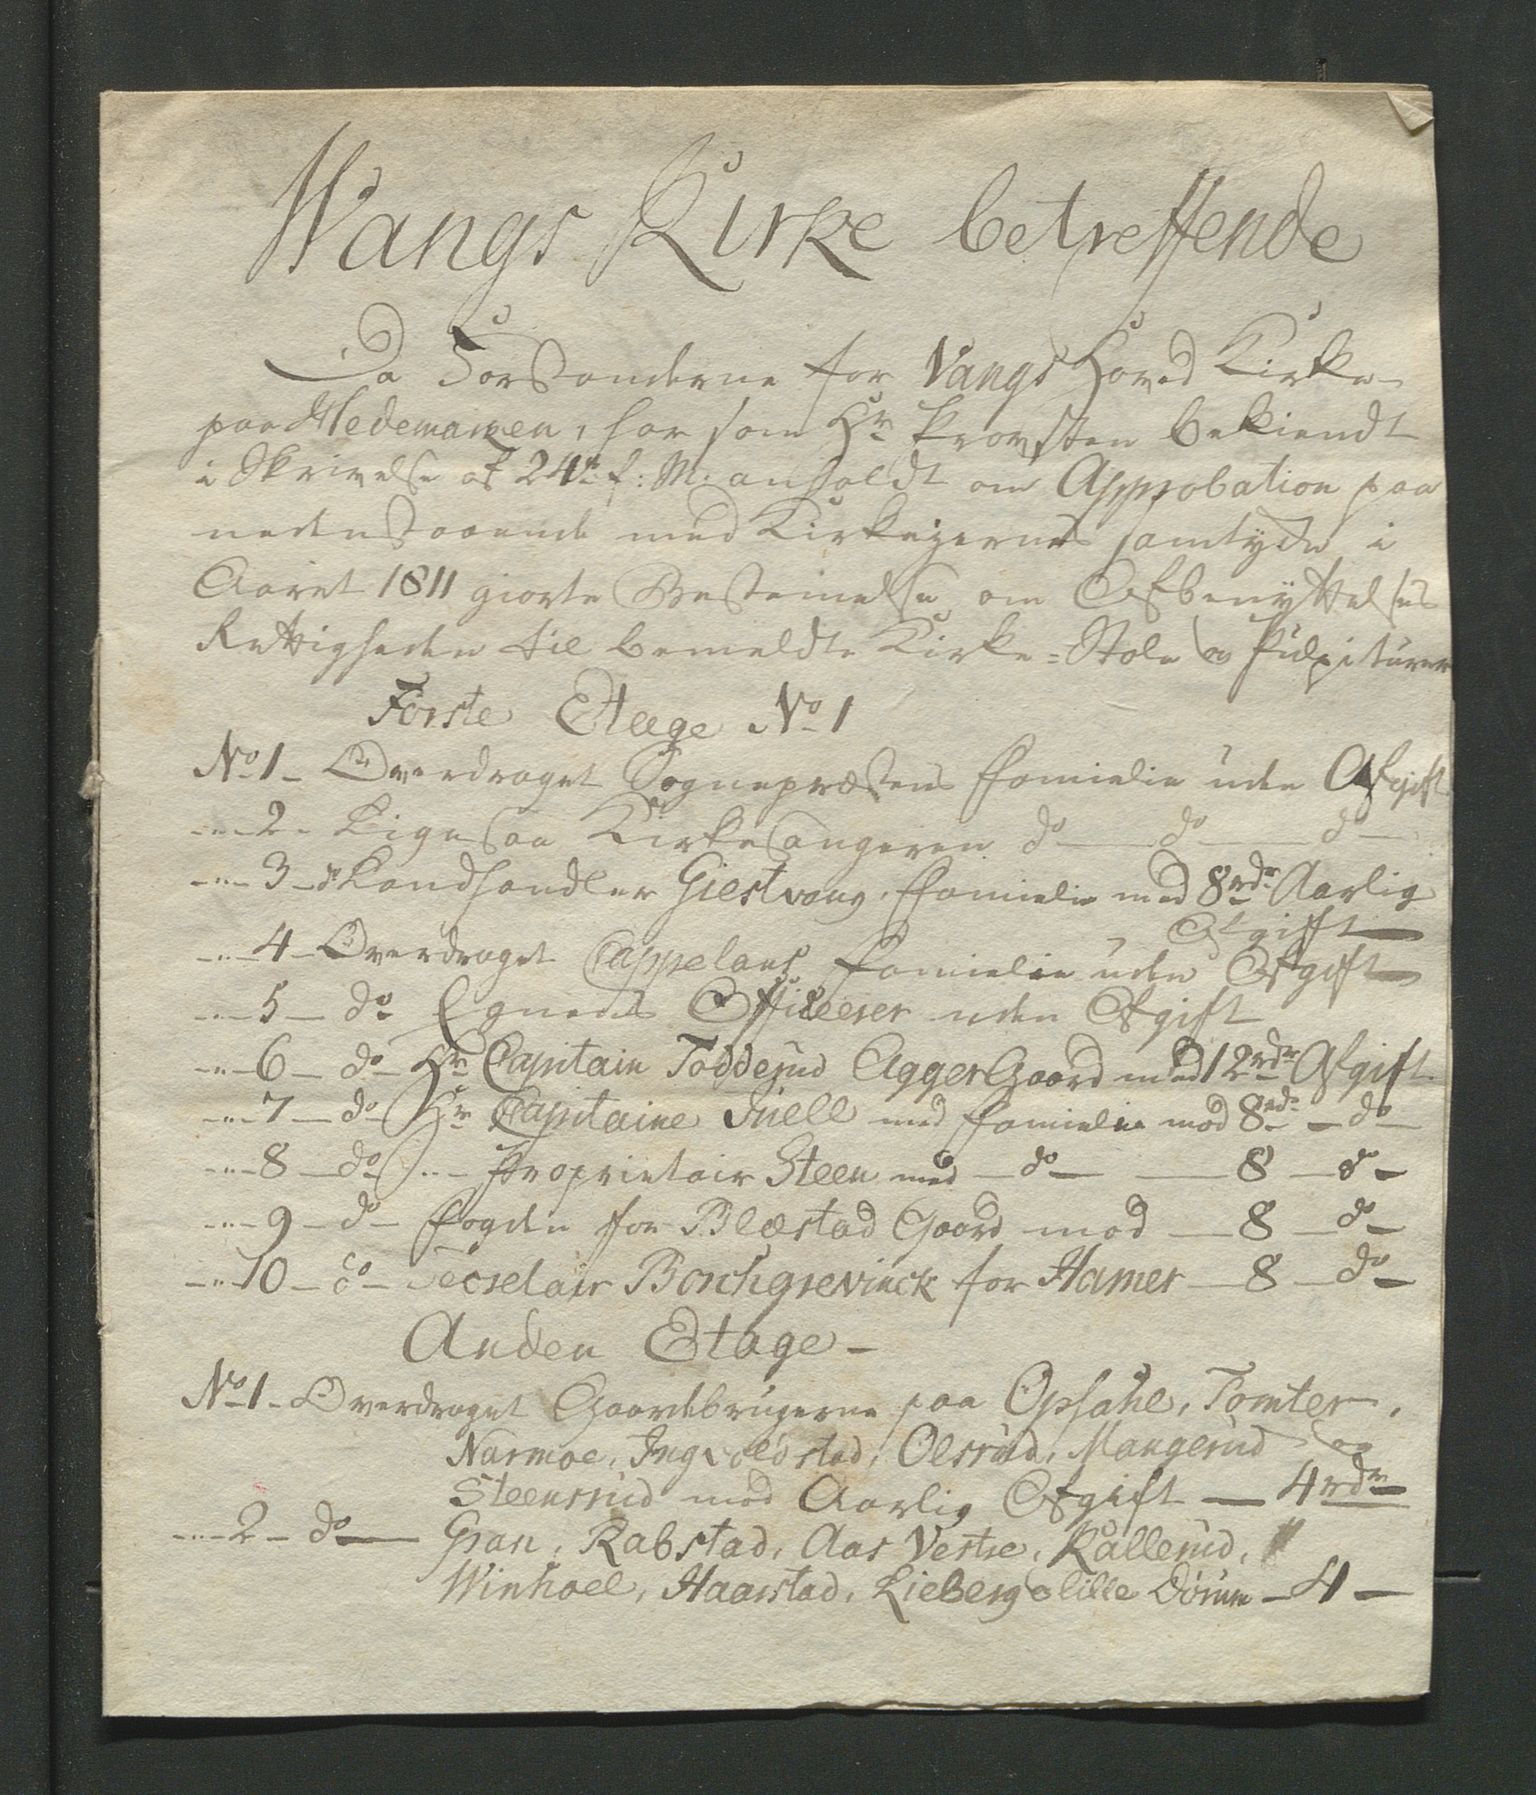 Wangs Kirke betreffende
Da Forstanderne for Vangs Hoved Kirke
paa Hedemarken, har som Hr Provsten bekiendt
i Skrivelse af 24de f: M: anholdt om Approbation paa
nedenstaaende med Kirkeejernes samtykke i
Aaret 1811 giorte Bestemelse om Afbenyttelses
Rettigheden til bemeldte Kirke=Stole og Pulpiturer
Förste Etage No 1
No 1 - Overdraget Sognepræstens Familie uden Afgift
-"- 2 - Ligesaa Kirkesangeren do do do
-"- 3 - Landhandler Giestvang Familie med 8 rdr Aarlig
Afgift
-"- 4 - Overdraget Cappelans Familie uden Afgift
-"- 5 - do Egnens Officeerer uden Afgift
-"- 6 - do - Hr Capitain Toddejud Agger Gaard med 12 rdr Afgift
-"- 7 - do Hr Capitaine Juell med Familie mod 8 rdr - do
-"- 8 - do - Proprietair Steen med - do - 8 - do -
-"- 9 - do - Fogden for Blæstad Gaard mod - 8 - do -
-"- 10 - do - Secretair Borchgrevinck for Hamer - 8 - do -
Anden Etage -
No 1 - Overdraget Gaardebrugerne paa Opsahl, Tomter,
Narmoe, Ingvoldstad, Olsrud, Mangerud og
Steensrud mod Aarlig Afgift - 4 rdr
-"- 2 - do - Gran, Rabstad, Aas Vestre, Kallerud,
Winhoel, Haarstad, Lieberg og lille Dörum - 4 -